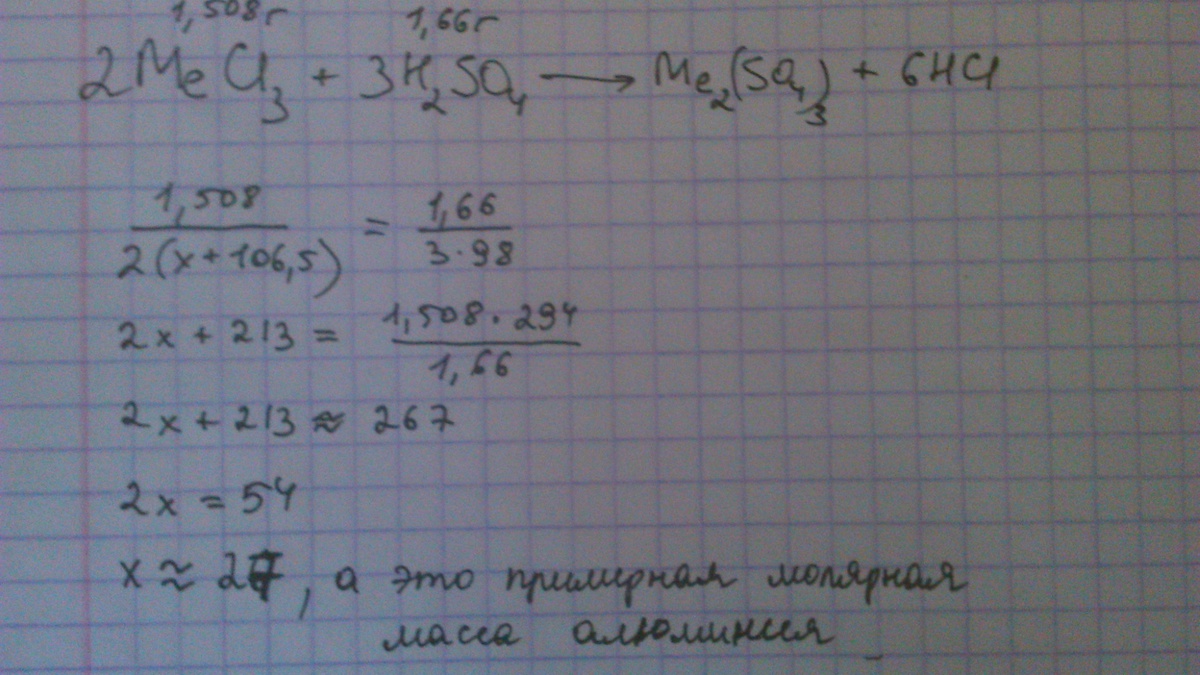 1,508г 1,66г
2MeCl₃ + 3H₂SO₄ ⟶ Me₂(SO₄)₃ + 6HCl
1,508 / 2(x+106,5) = 1,66 / 3·98
2x + 213 = 1,508·294 / 1,66
2x + 213 ≈ 267
2x = 54
x ≈ 27, а это примерная молярная
масса алюминия